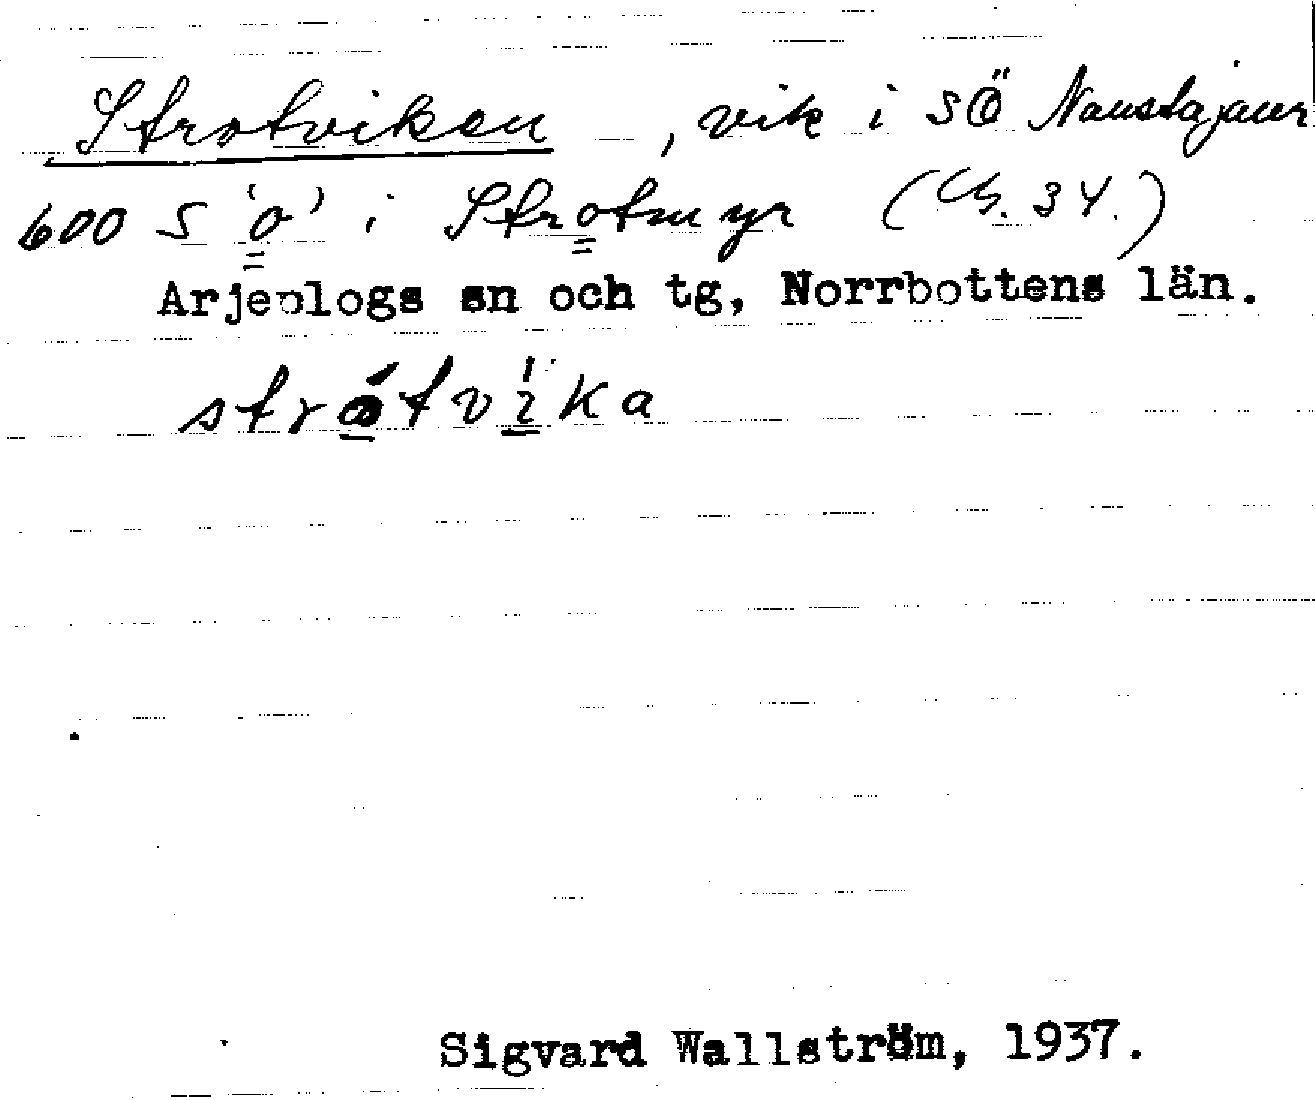 Strotviken, vik i SÖ Naustajaur
600 S 'o' i Strotmyr ( 34.)
Arjeplogs sn och tg, Norrbottens län.
strótvika
Sigvard Wallström, 1937.